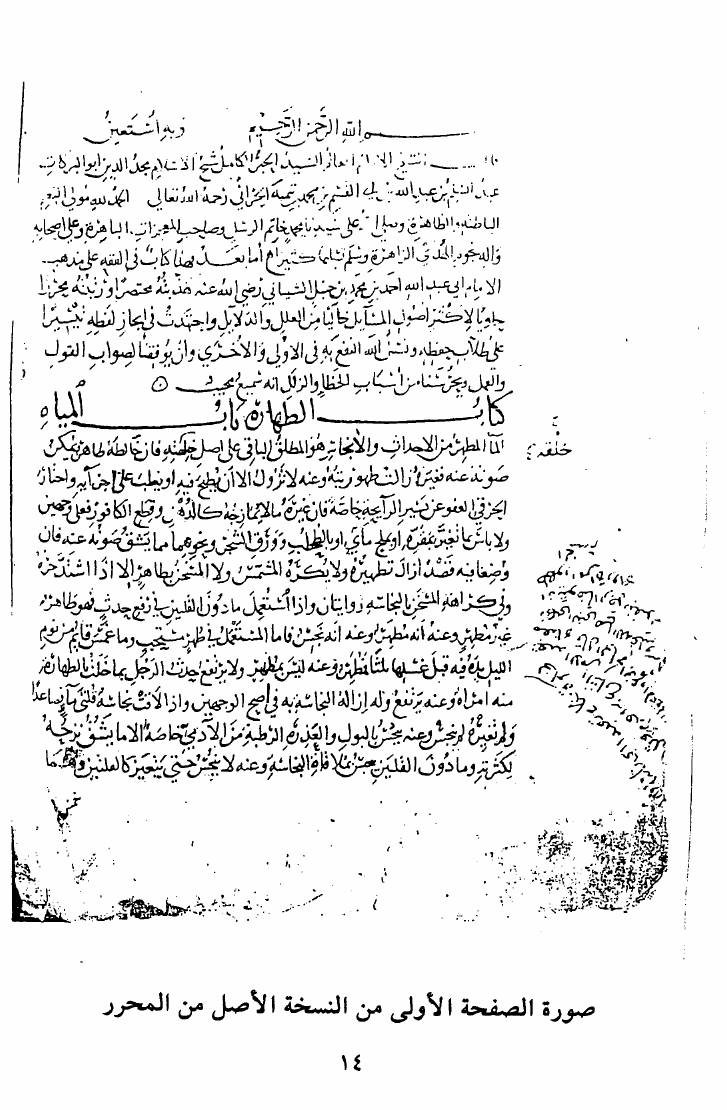 بسم الله الرحمن الرحيم وبه استعين
الشيخ الامام العالم السيد الحبر الكامل شيخ الاسلام مجد الدين ابو البركات
عبد السلام بن عبد الله بن ابي القسم بن محمد بن تيمية الحراني رحمه الله تعالى الحمد لله مولي النعم
الباطنه والظاهرة وصلى الله على سيدنا محمد خاتم الرسل وصاحب المعجزات الباهرة وعلى اصحابه
واله نجوم الهدى الزاهرة وسلم تسليما كثيرا أما بعد فهذا كتاب في الفقه على مذهب
الامام ابي عبد الله احمد بن محمد بن حنبل الشيباني رضي الله عنه هذبته مختصرا ورتبته محررا
حاويا لاكثر اصول المسايل خاليا من العلل والدلايل واجتهدت في ايجاز لفظه تيسيرا
على طلاب حفظه ونسئل الله النفع به في الاولى والاخرى وان يوفقنا لصواب القول
والعمل ويحرسنا من اسباب الخطا والزلل انه سميع مجيب
كتاب الطهارة باب المياه
الما المطهر من الاحداث والانجاس هو المطلق الباقي على اصل خلقته فان خالطه طاهر يمكن
صونه عنه فغيره زالت طهوريته وعنه لا تزول الا ان يطبخ فيه او يغلب على اجزآيه واختار
الخرقي العفو عن يسير الرآيحة خاصة فان غيره ما لا يمازجه كالدهن وقطع الكافور فعلى وجهين
ولا باس بما تغير بمقره او بملح مآي او بالطحلب وورق الشجر ونحوهما مما يشق صونه عنه فان
وضعا فيه قصدا زال تطهيره ولا يكره المشمس ولا المسخن بطاهر إلا اذا اشتد حره
وفي كراهة المسخن بالنجاسة روايتان واذا استعمل ما دون القلتين في رفع حدث فهو طاهر
غير مطهر وعنه أنه مطهر وعنه انه نجس فاما المستعمل في طهر مستحب وما غمس قايم من نوم
الليل يده فيه قبل غسلها ثلثا فمطهر وعنه ليس بمطهر ولا يرفع حدث الرجل بما خلت بالطهارة
منه امراة وعنه يرتفع وله إزالة النجاسة به في اصح الوجهين واذا لاقت نجاسة قلتي ما فصاعدا
ولم تغيره لم ينجس وعنه ينجس بالبول والعذرة الرطبة من الآدمي خاصة الا ما يشق نزحه
لكثرته وما دون القلتين ينجس بملاقاة النجاسة وعنه لا ينجس حتى يتغير كالقلتين وهما
خلقه
صورة الصفحة الأولى من النسخة الأصل من المحرر
١٤